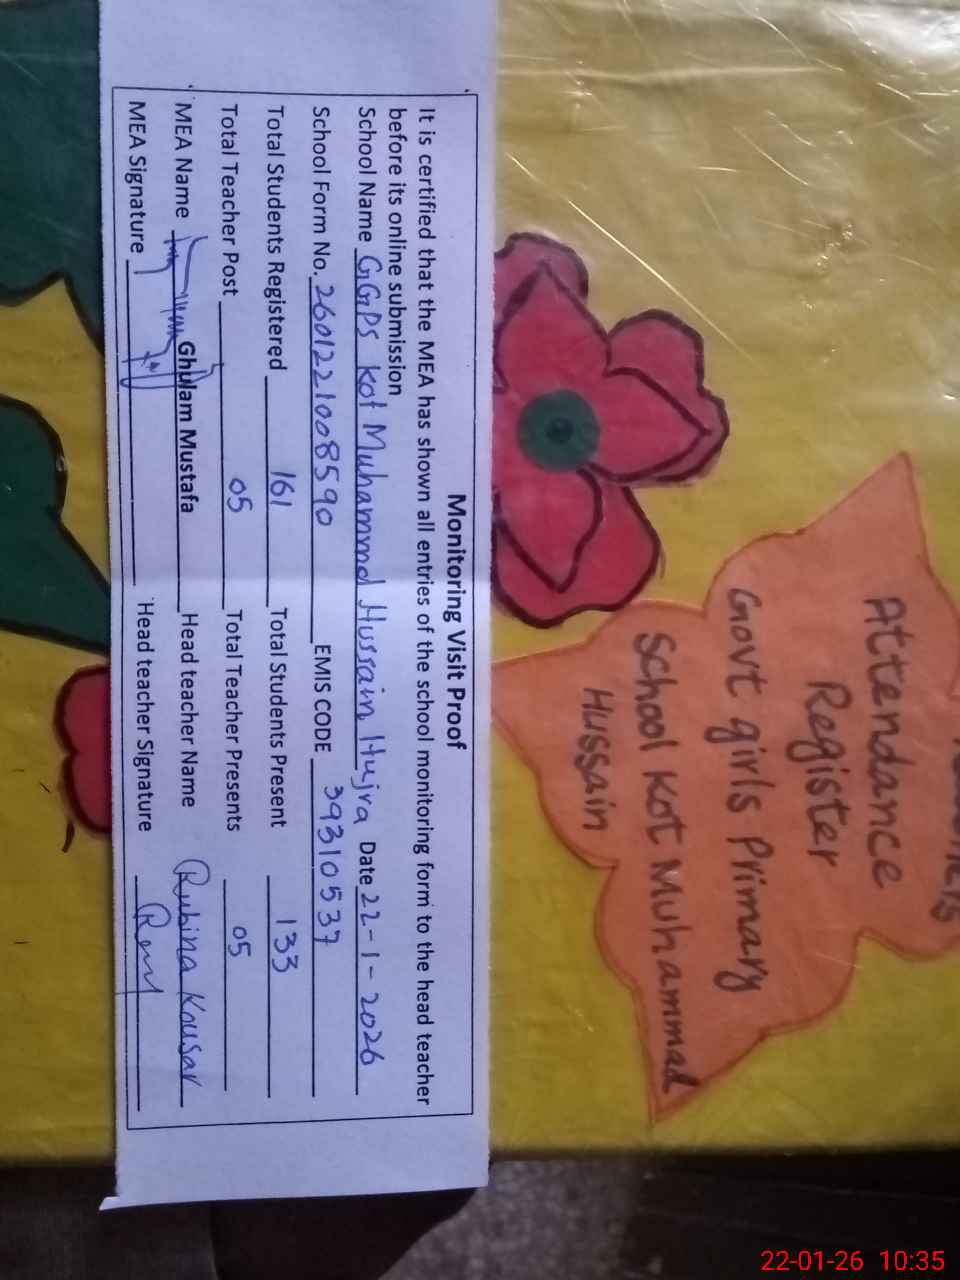 Monitoring Visit Proof
It is certified that the MEA has shown all entries of the school monitoring form to the head teacher
before its online submission
School Name GGPS Kot Muhammd Hussain Hujra Date 22-1-2026
School Form No. 2601221008590 EMIS CODE 39310537
Total Students Registered 161 Total Students Present 133
Total Teacher Post 05 Total Teacher Presents 05
MEA Name Ghulam Mustafa Head teacher Name Rubina Kousar
MEA Signature Head teacher Signature
Attendance
Register
Govt girls Primary
School Kot Muhammad
Hussain
22-01-26 10:35